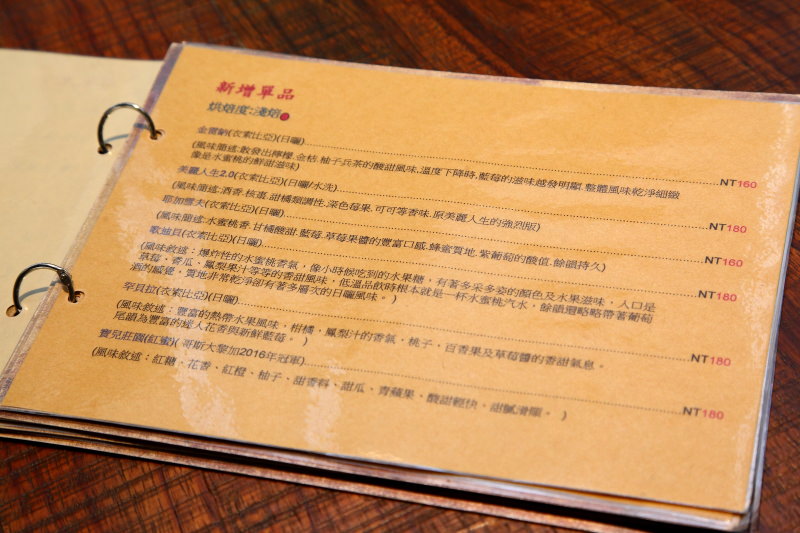 新增單品
烘焙度:淺焙
金雷納(衣索比亞)(日曬) NT160
(風味簡述:散發出檸檬.金桔.柚子兵茶的酸甜風味.溫度下降時.藍莓的滋味越發明顯.整體風味乾淨細緻
像是水蜜桃的鮮甜滋味)
美麗人生2.0(衣索比亞)(日曬/水洗) NT180
(風味簡述:酒香.核棗.甜橘類調性.深色莓果.可可等香味.原美麗人生的強烈版)
耶加雪夫(衣索比亞)(日曬) NT160
(風味簡述:水蜜桃香.甘橘酸甜.藍莓.草莓果醬的豐富口感.蜂蜜質地.紫葡萄的酸值.餘韻持久)
歌迪貝(衣索比亞)(日曬) NT180
(風味敘述：爆炸性的水蜜桃香氣，像小時候吃到的水果糖，有著多采多姿的顏色及水果滋味，入口是
草莓、香瓜、鳳梨果汁等等的香甜風味，低溫品飲時根本就是一杯水蜜桃汽水，餘韻還略略帶著葡萄
酒的感覺，質地非常乾淨卻有著多層次的日曬風味。)
罕貝拉(衣索比亞)(日曬) NT180
(風味敘述：豐富的熱帶水果風味，柑橘、鳳梨汁的香氣，桃子，百香果及草莓醬的香甜氣息。
尾韻為豐富的迷人花香與新鮮藍莓。)
寶兒莊園(紅蜜)(哥斯大黎加2016年冠軍) NT180
(風味敘述：紅糖、花香、紅橙、柚子、甜香料、甜瓜、青蘋果，酸甜輕快、甜膩滑順。)